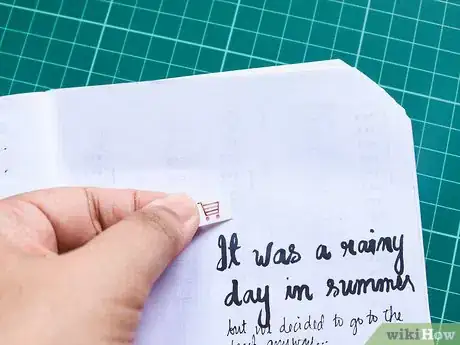 It was a rainy
day in summer
but we decided to go to the
anyway...
wikiHow